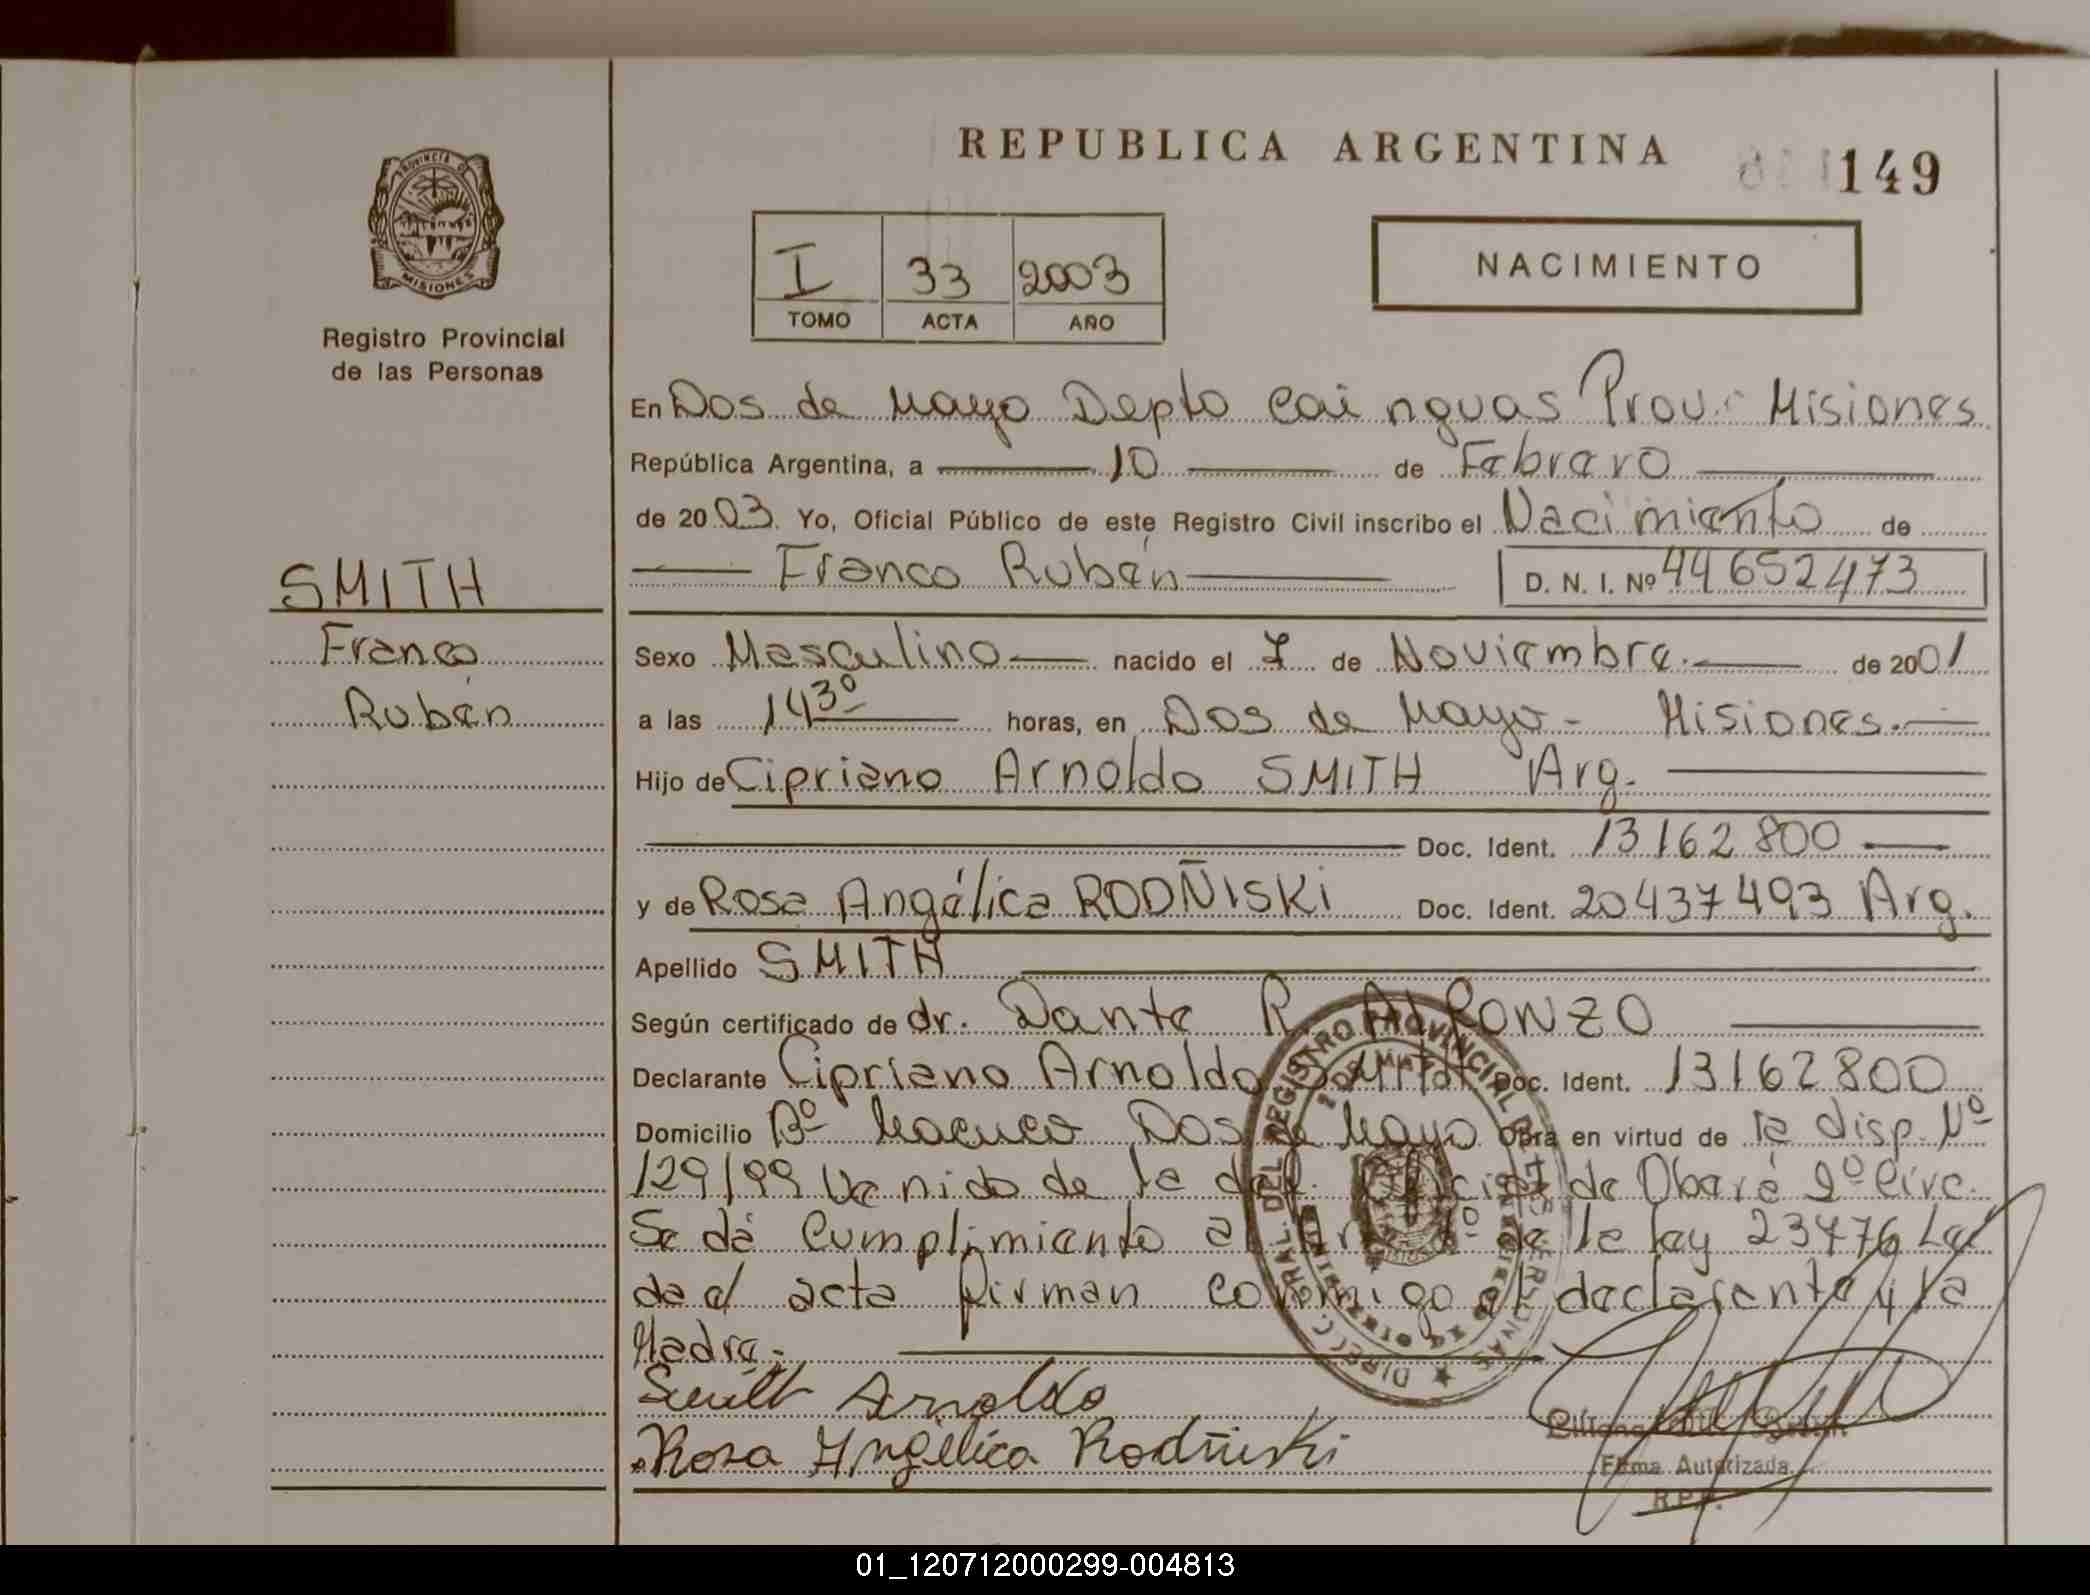 REPUBLICA ARGENTINA
149
PROVINCIA DE MISIONES
Registro Provincial
de las Personas
I 33 2003
TOMO ACTA AÑO
NACIMIENTO
En Dos de Mayo Depto Cainguas Prov. Misiones
República Argentina, a 10 de Febrero
de 2003 Yo, Oficial Público de este Registro Civil inscribo el Nacimiento de
Franco Rubén D. N. I. Nº 44652473
SMITH
Franco
Rubén
Sexo Masculino nacido el 7 de Noviembre. de 2001
a las 14 30 horas, en Dos de Mayo - Misiones.
Hijo de Cipriano Arnoldo SMITH Arg.
Doc. Ident. 13162800
y de Rosa Angélica RODÑISKi Doc. Ident. 20437493 Arg.
Apellido SMITH
Según certificado de dr. Dante R. ALFONZO
Declarante Cipriano Arnoldo SMITH Doc. Ident. 13162800
Domicilio Bº Macuco Dos de Mayo Obra en virtud de la disp. Nº
129/99 Venido de la del. de Oberá 2º Circ.
Se dá cumplimiento al Art. 1º de la ley 23476 Leí
da el acta firman conmigo el declarante y la
Madre.
Smith Arnoldo
Rosa Angélica Rodñiski
Firma Autorizada
R.P.P.
01_120712000299-004813